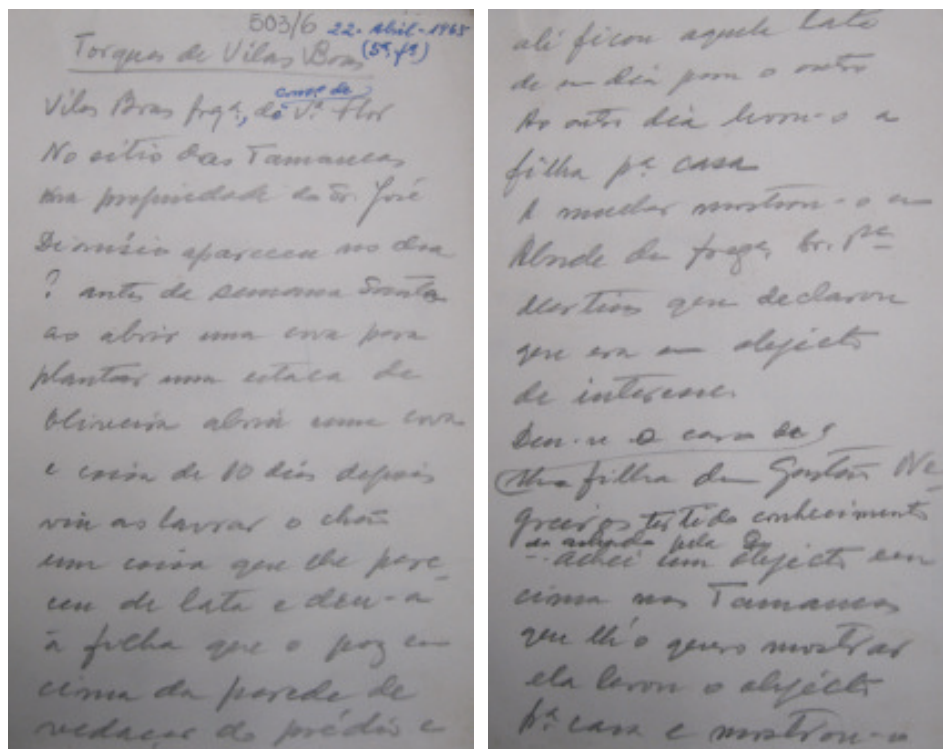 503/6 22-Abril-1965
Torques de Vilas Boas (5ª fª)
conc. de
Vilas Boas fregª, de Vª Flor
No sitio das Tamancas
na propriedade do Sr. José
Dionísio apareceu no dia
? antes da semana Santa
ao abrir uma cova para
plantar uma estaca de
Oliveira abriu uma cova
e coisa de 10 dias depois
viu ao lavrar o chão
uma coisa que lhe pare-
ceu de lata e deu-a
à filha que o poz em
cima da parede de
vedação do prédio e
ali ficou aquela lata
de um dia para o outro
Ao outro dia levou-o a
filha pª casa
A mulher mostrou-o ao
Abade da fregª
Martins que declarou
que era um objecto
de interesse.
Deu-se o caso de
Uma filha de Gastão Ne-
greiros ter tido conhecimento
do achado pela
- Achei um objecto em
cima nas Tamancas
que lh'o quero mostrar
ela levou o objecto
pª casa e mostrou-o